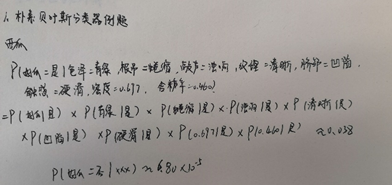 1. 朴素贝叶斯分类器例题
西瓜
P(好瓜=是|色泽=青绿, 根蒂=蜷缩, 敲声=浊响, 纹理=清晰, 脐部=凹陷,
触感=硬滑, 密度=0.697, 含糖率=0.460)
=P(好瓜|是) × P(青绿|是) × P(蜷缩|是) × P(浊响|是) × P(清晰|是)
×P(凹陷|是) × P(硬滑|是) × P(0.697|是) × P(0.460|是) ≈ 0.038
P(好瓜=否|xxx) ≈ 6.80×10⁻⁵